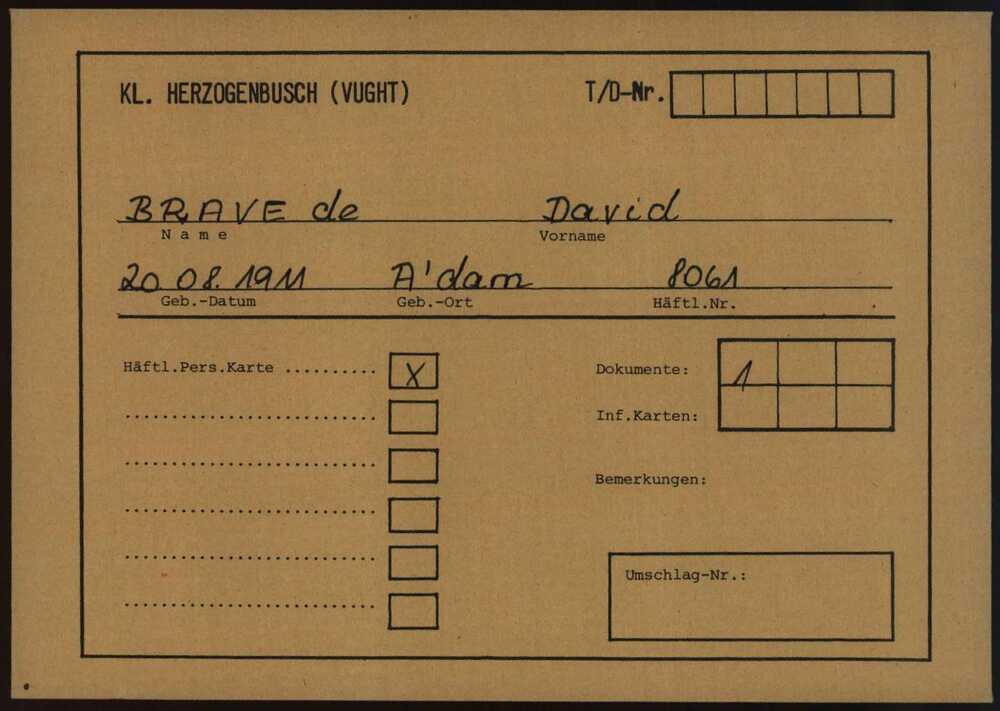 KL. HERZOGENBUSCH (VUGHT) T/D-Nr.
BRAVE de David
Name Vorname
20 08. 1911 A'dam 8061
Geb.-Datum Geb.-Ort Häftl.Nr.
Häftl.Pers.Karte .......... X Dokumente: 1
Inf.Karten:
Bemerkungen:
Umschlag-Nr.: